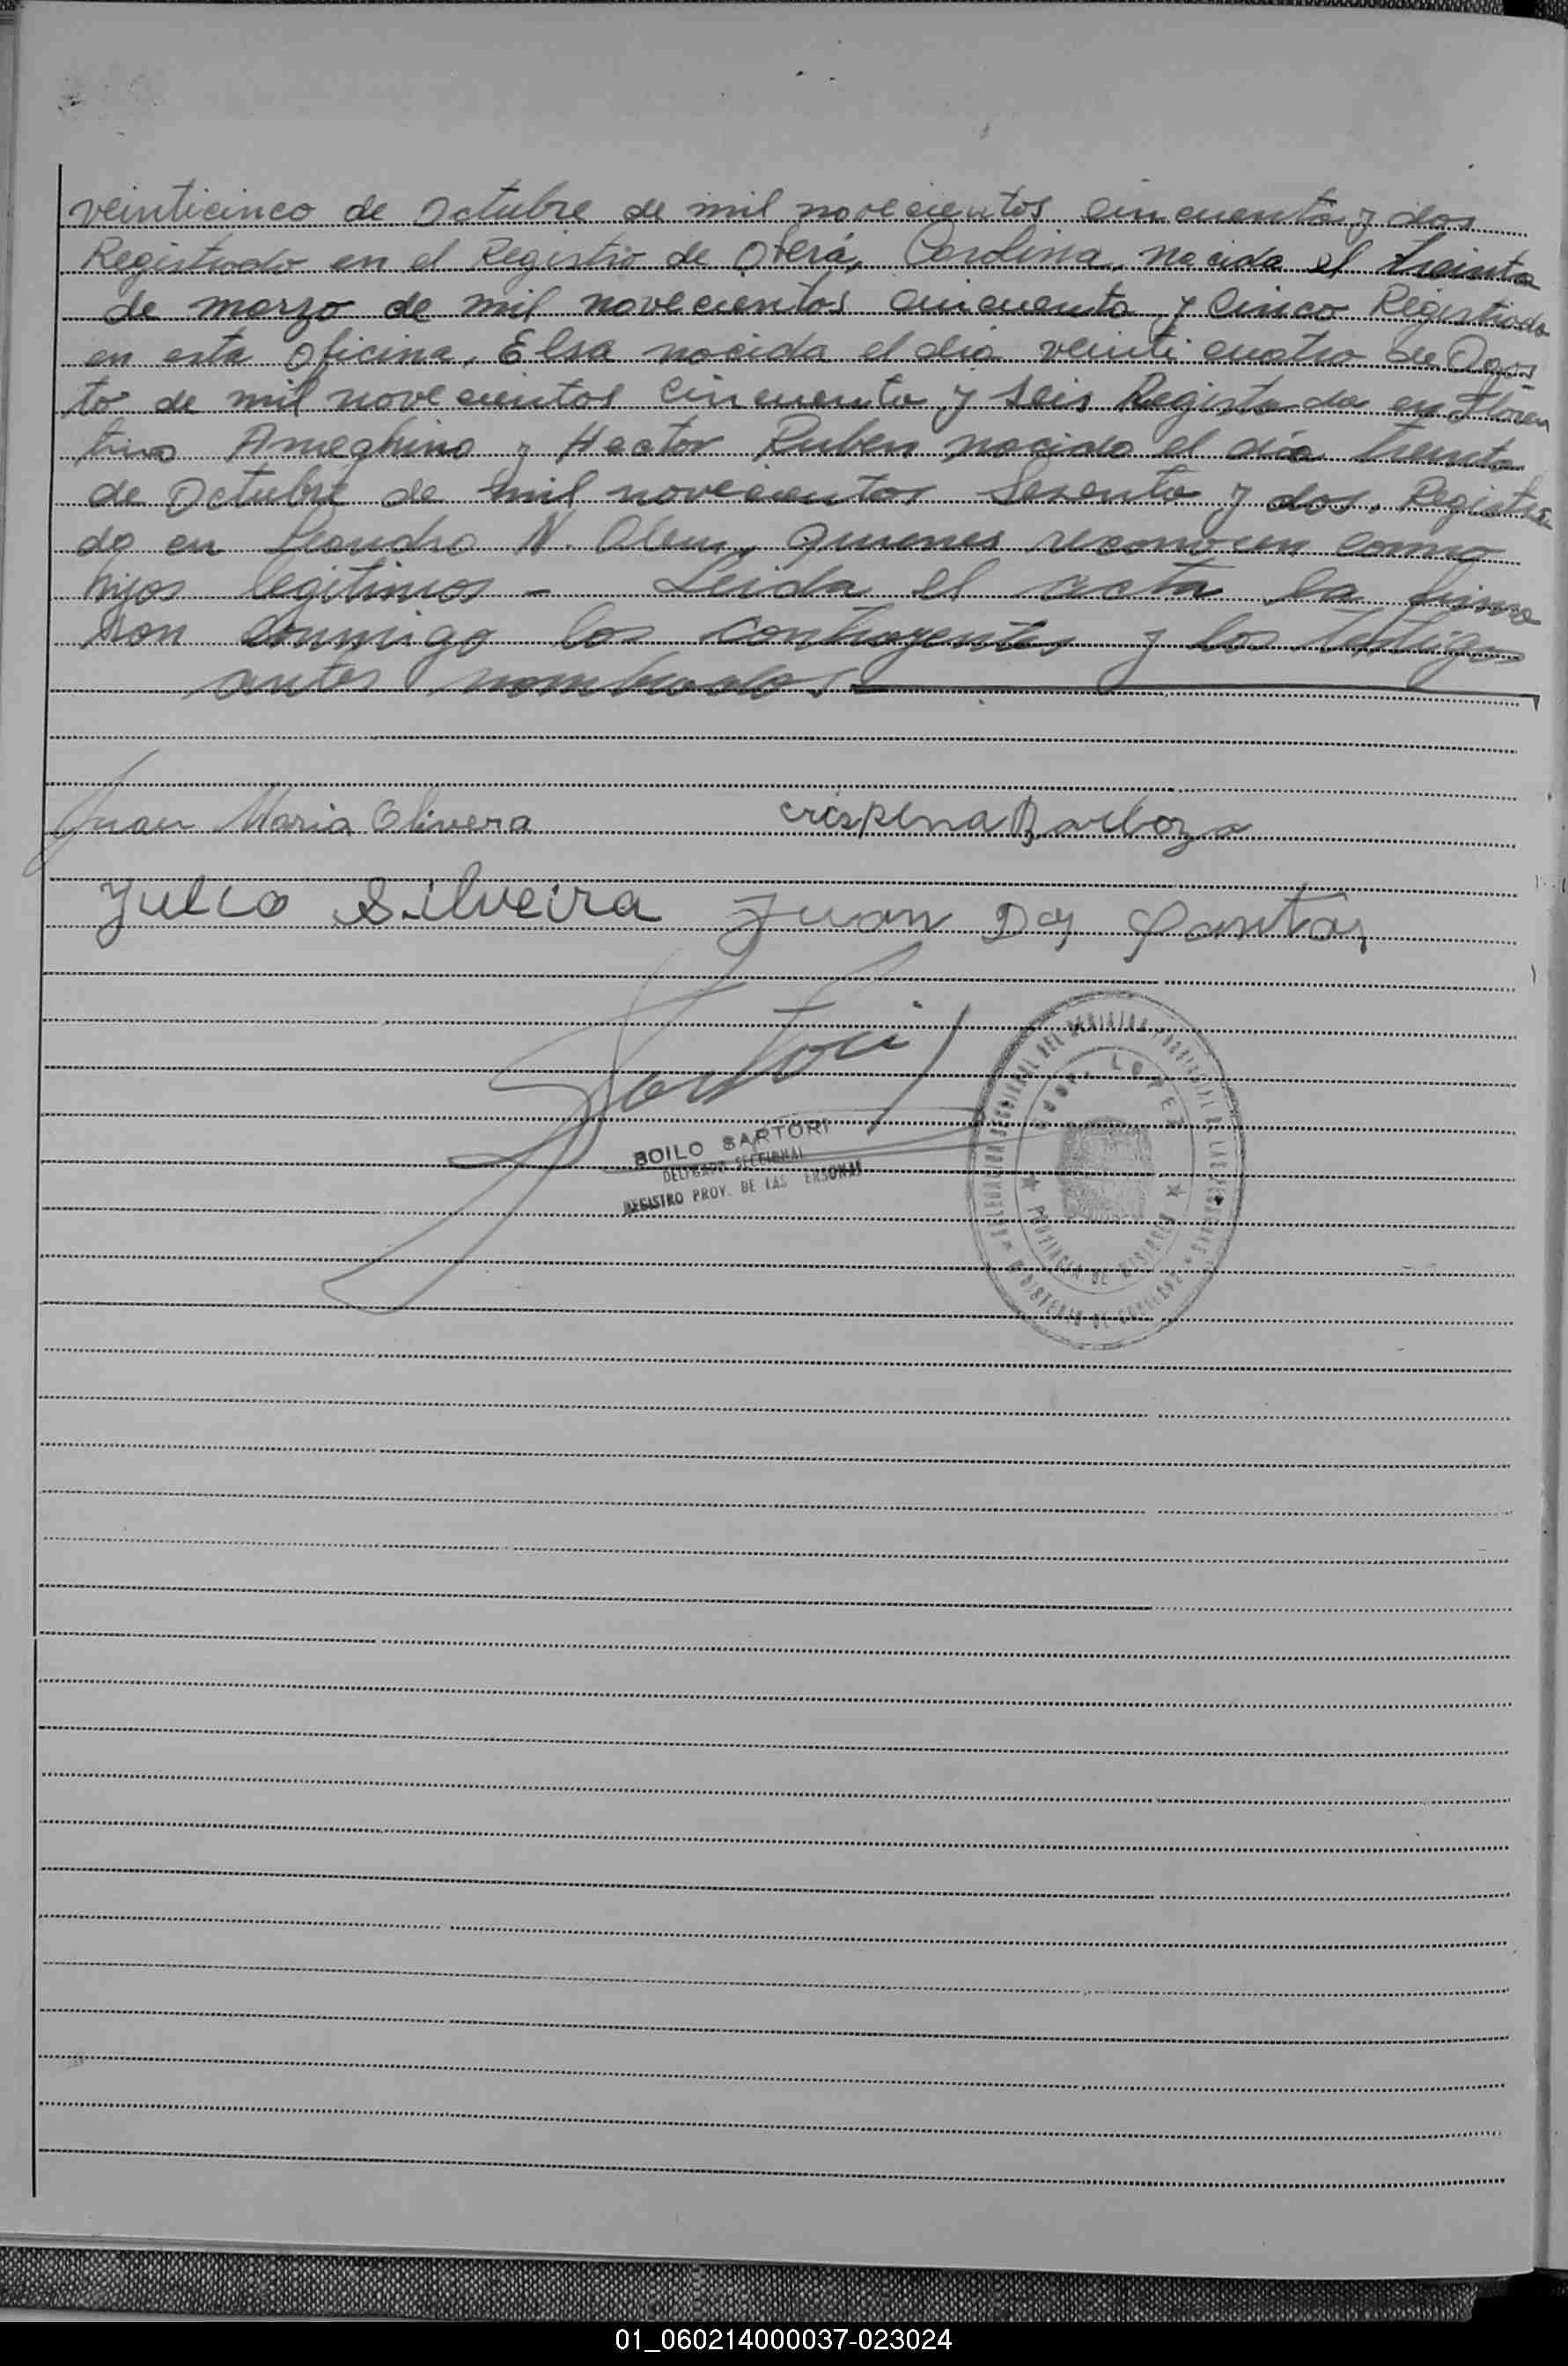 veinticinco de Octubre de mil novecientos cincuenta y dos
Registrado en el Registro de Oberá, Carolina, nacida el treinta
de marzo de mil novecientos cincuenta y Cinco Registrada
en esta Oficina, Elsa nacida el dia veinti cuatro de Agos-
to de mil novecientos cincuenta y seis Registrada en Floren
tino Ameghino y Hector Ruben nacido el día treinta
de Octubre de mil novecientos Sesenta y dos. Registra
do en Leandro N. Alem, quienes reconocen como
hijos legitimos - Leida el acta la firma
ron conmigo los contrayentes y los testigos
antes nombrados
Juan Maria Olivera crispina Barboza
Julio Silveira Juan Dos Santos
Sartori
BOILO SARTORI
DELEGADO SECCIONAL
REGISTRO PROV. DE LAS PERSONAS
DELEGACION SECCIONAL DEL REGISTRO PROVINCIAL DE LAS PERSONAS
GDOR. LOPEZ
PROVINCIA DE MISIONES
MINISTERIO DE GOBIERNO
01_060214000037-023024